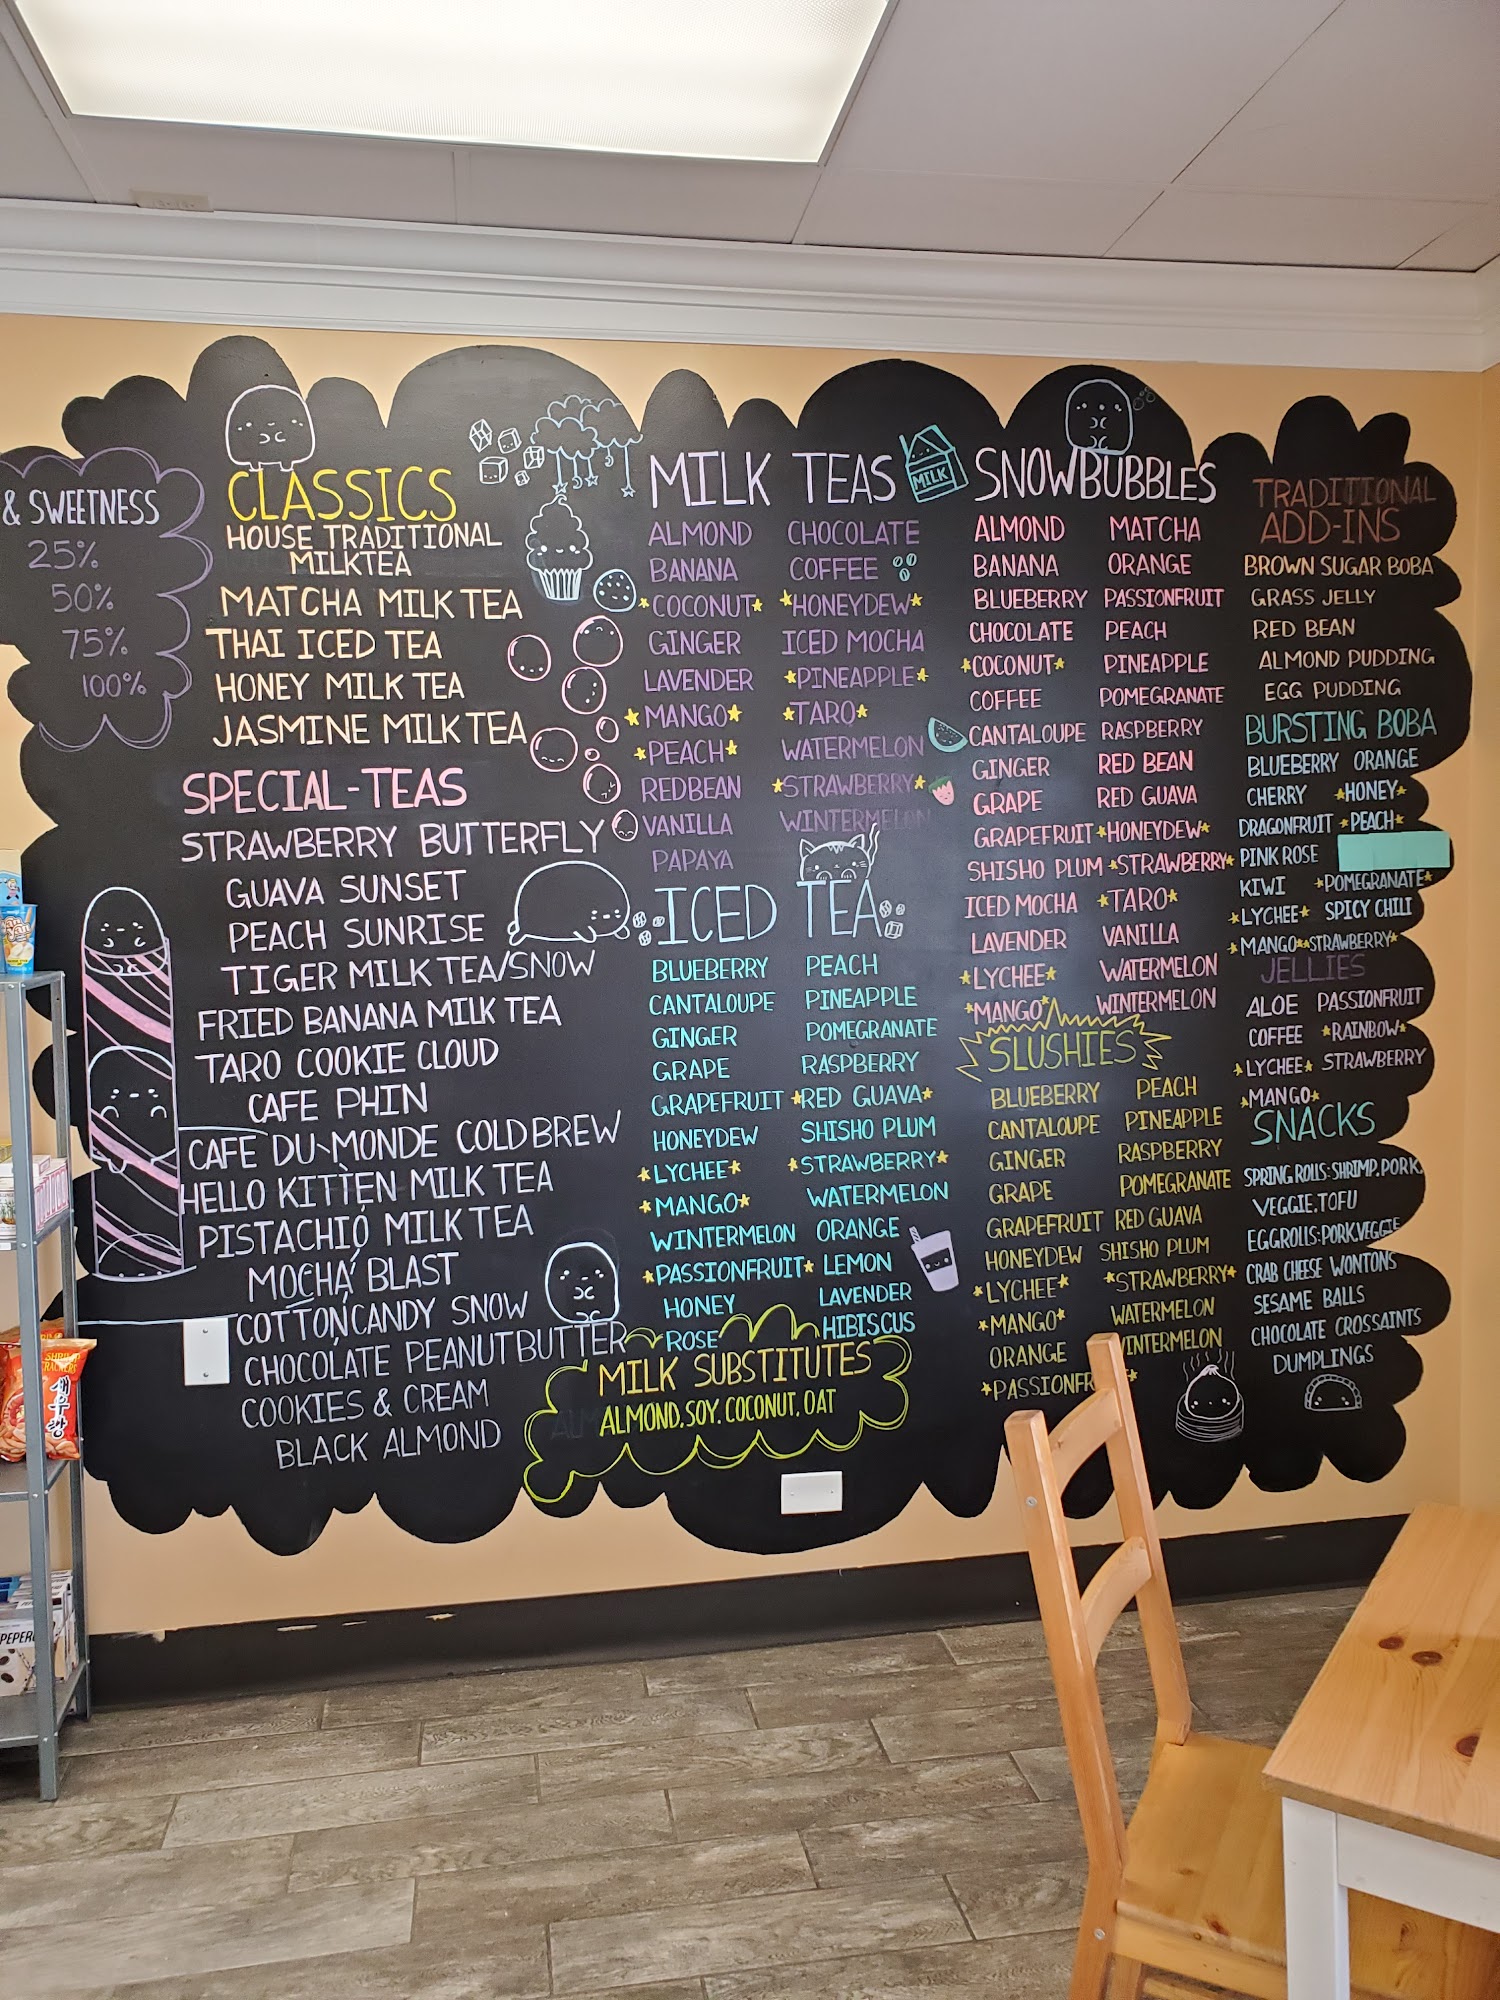 & SWEETNESS
25%
50%
75%
100%
CLASSICS
HOUSE TRADITIONAL
MILKTEA
MATCHA MILK TEA
THAI ICED TEA
HONEY MILK TEA
JASMINE MILK TEA
SPECIAL-TEAS
STRAWBERRY BUTTERFLY
GUAVA SUNSET
PEACH SUNRISE
TIGER MILK TEA/SNOW
FRIED BANANA MILK TEA
TARO COOKIE CLOUD
CAFE PHIN
CAFE DU-MONDE COLDBREW
HELLO KITTEN MILK TEA
PISTACHIO MILK TEA
MOCHA BLAST
COTTON CANDY SNOW
CHOCOLATE PEANUTBUTTER
COOKIES & CREAM
BLACK ALMOND
MILK TEAS
MILK
ALMOND CHOCOLATE
BANANA COFFEE
*COCONUT* *HONEYDEW*
GINGER ICED MOCHA
LAVENDER *PINEAPPLE*
*MANGO* *TARO*
*PEACH* WATERMELON
REDBEAN *STRAWBERRY*
VANILLA WINTERMELON
PAPAYA
ICED TEA
BLUEBERRY PEACH
CANTALOUPE PINEAPPLE
GINGER POMEGRANATE
GRAPE RASPBERRY
GRAPEFRUIT *RED GUAVA*
HONEYDEW SHISHO PLUM
*LYCHEE* *STRAWBERRY*
*MANGO* WATERMELON
WINTERMELON ORANGE
*PASSIONFRUIT* LEMON
HONEY LAVENDER
ROSE HIBISCUS
MILK SUBSTITUTES
ALMOND, SOY, COCONUT, OAT
SNOWBUBBLES
ALMOND MATCHA
BANANA ORANGE
BLUEBERRY PASSIONFRUIT
CHOCOLATE PEACH
*COCONUT* PINEAPPLE
COFFEE POMEGRANATE
CANTALOUPE RASPBERRY
GINGER RED BEAN
GRAPE RED GUAVA
GRAPEFRUIT *HONEYDEW*
SHISHO PLUM *STRAWBERRY*
ICED MOCHA *TARO*
LAVENDER VANILLA
*LYCHEE* WATERMELON
*MANGO* WINTERMELON
SLUSHIES
BLUEBERRY PEACH
CANTALOUPE PINEAPPLE
GINGER RASPBERRY
GRAPE POMEGRANATE
GRAPEFRUIT RED GUAVA
HONEYDEW SHISHO PLUM
*LYCHEE* *STRAWBERRY*
*MANGO* WATERMELON
ORANGE WINTERMELON
*PASSIONFR
TRADITIONAL
ADD-INS
BROWN SUGAR BOBA
GRASS JELLY
RED BEAN
ALMOND PUDDING
EGG PUDDING
BURSTING BOBA
BLUEBERRY ORANGE
CHERRY *HONEY*
DRAGONFRUIT *PEACH*
PINK ROSE
KIWI *POMEGRANATE*
*LYCHEE* SPICY CHILI
*MANGO* *STRAWBERRY*
JELLIES
ALOE PASSIONFRUIT
COFFEE *RAINBOW*
*LYCHEE* STRAWBERRY
*MANGO*
SNACKS
SPRING ROLLS: SHRIMP, PORK,
VEGGIE, TOFU
EGGROLLS: PORK, VEGGIE
CRAB CHEESE WONTONS
SESAME BALLS
CHOCOLATE CROSSAINTS
DUMPLINGS
SHRIMP
CRACKERS
새우랑
PEPER